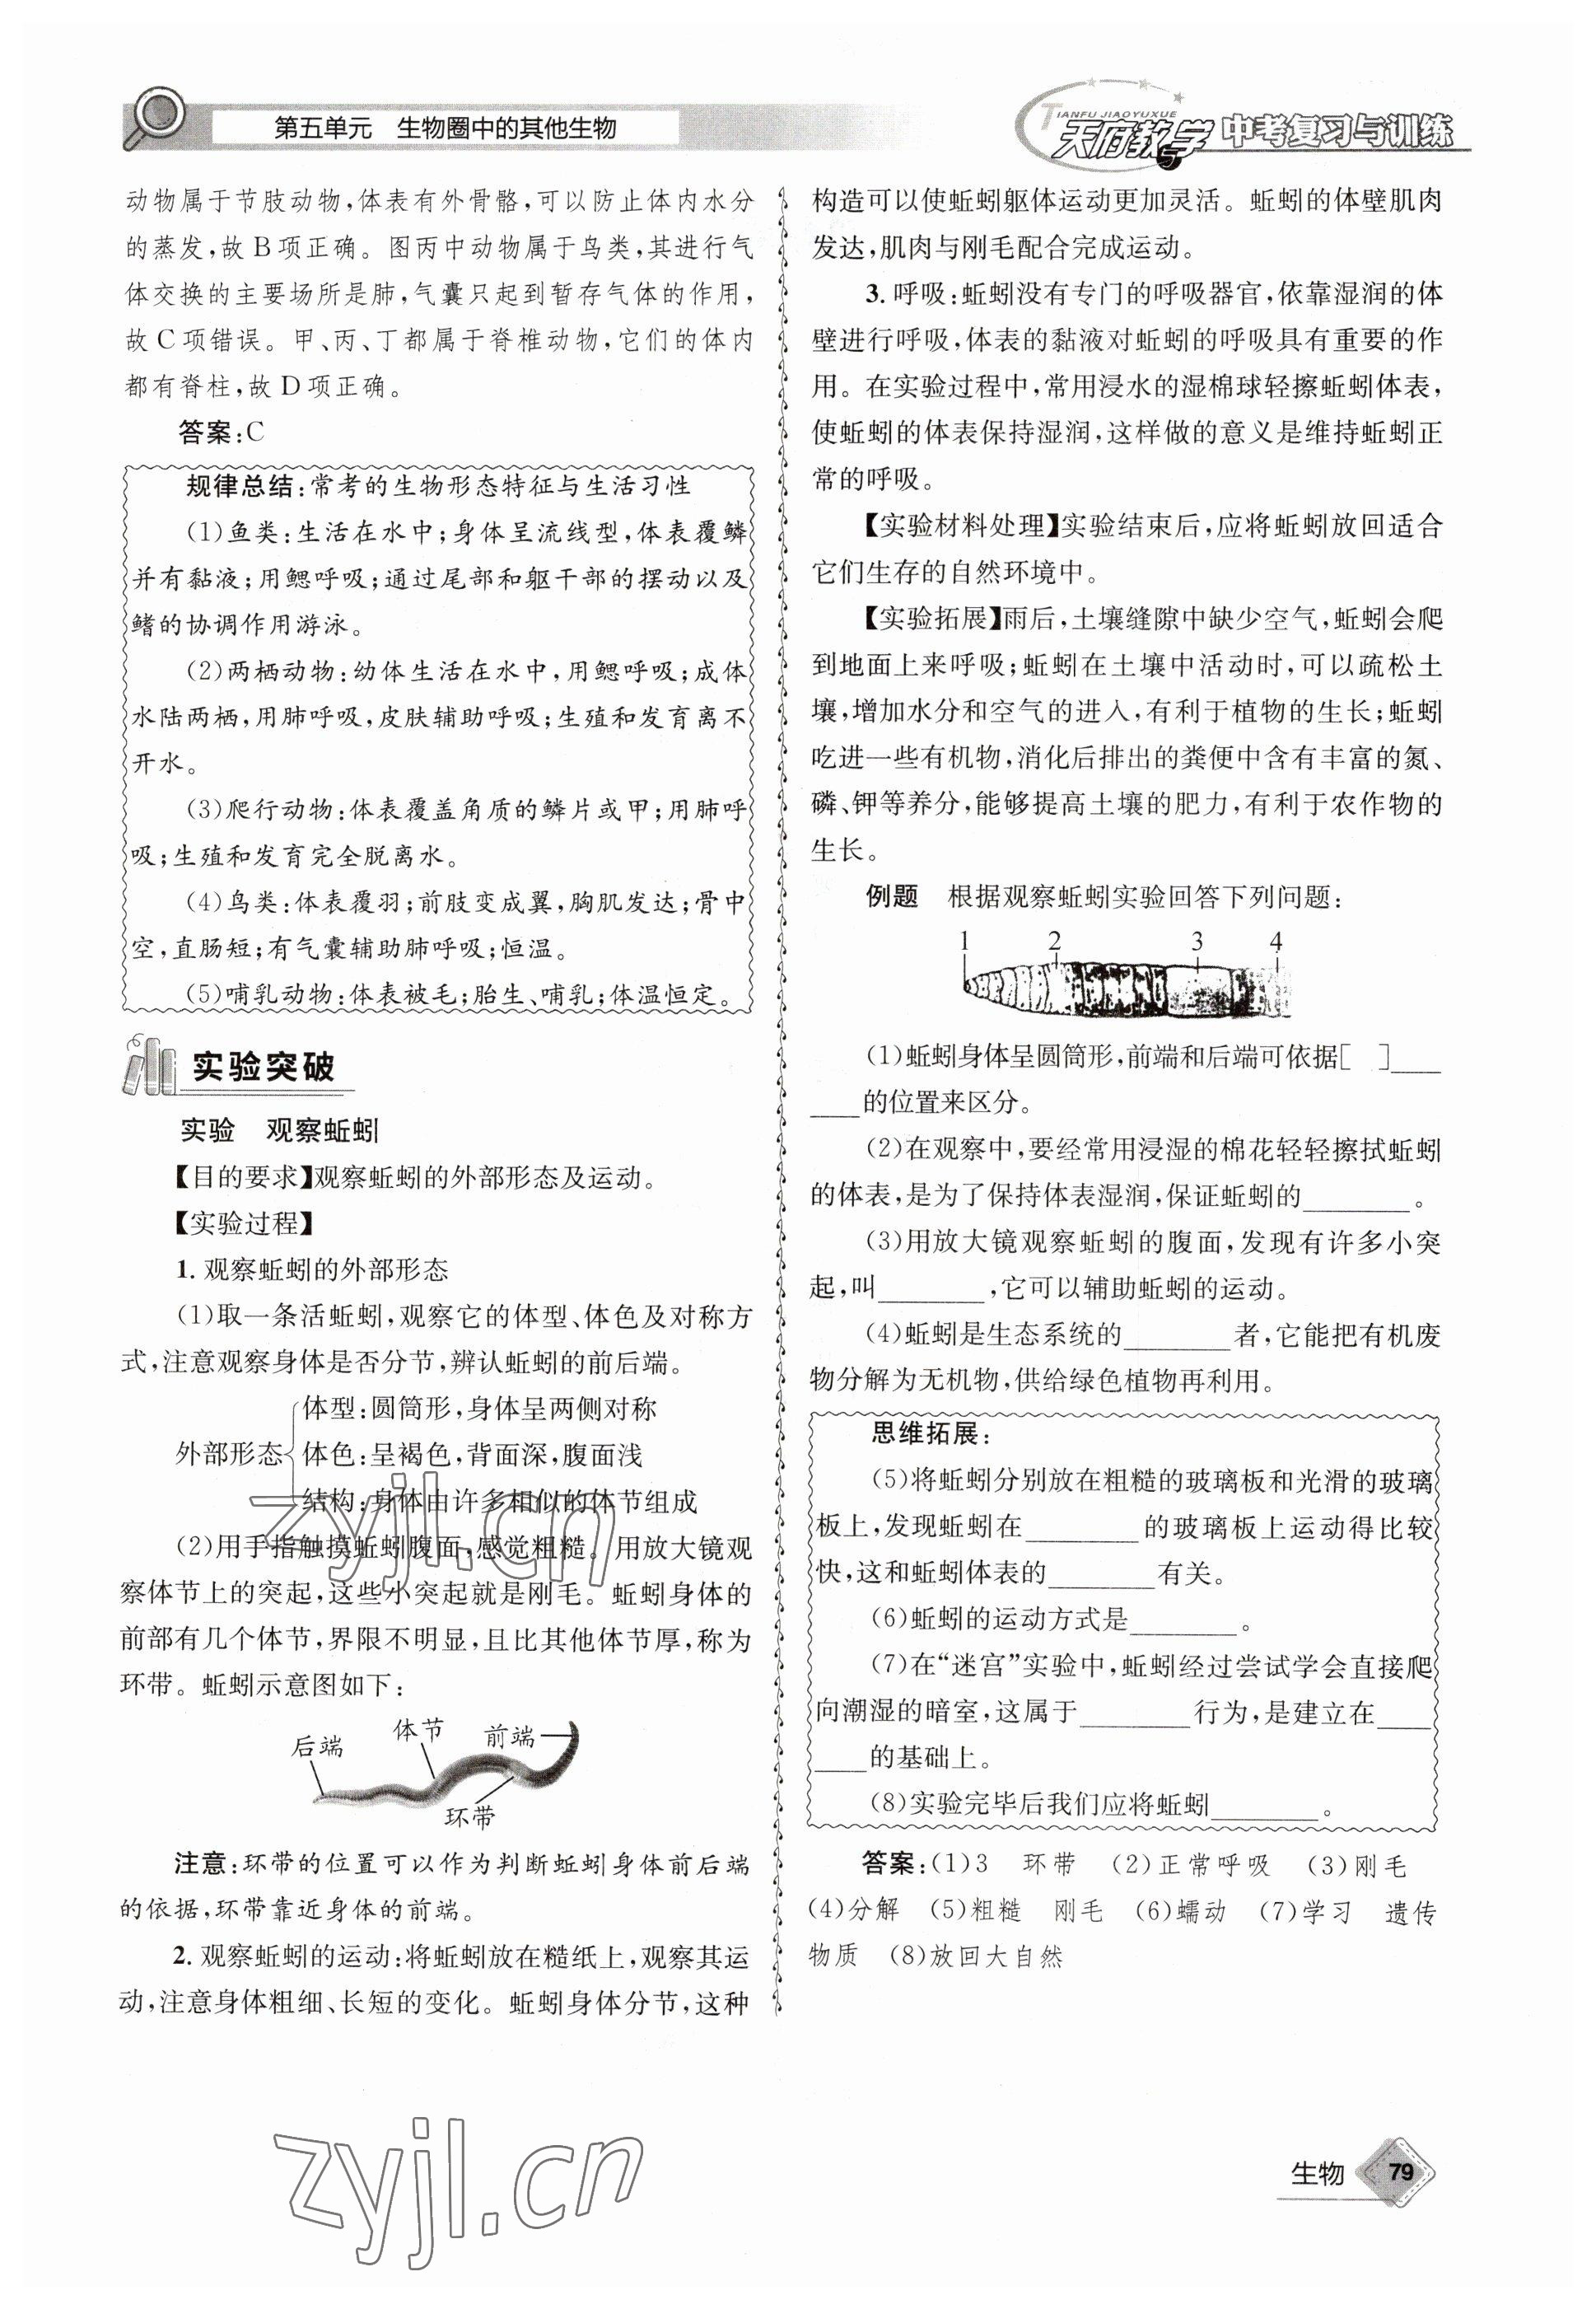 第五单元　生物圈中的其他生物
TIANFU JIAOYUXUE
天府教与学 中考复习与训练
动物属于节肢动物,体表有外骨骼,可以防止体内水分
的蒸发,故B项正确。图丙中动物属于鸟类,其进行气
体交换的主要场所是肺,气囊只起到暂存气体的作用,
故C项错误。甲、丙、丁都属于脊椎动物,它们的体内
都有脊柱,故D项正确。
答案:C
规律总结:常考的生物形态特征与生活习性
(1)鱼类:生活在水中;身体呈流线型,体表覆鳞
并有黏液;用鳃呼吸;通过尾部和躯干部的摆动以及
鳍的协调作用游泳。
(2)两栖动物:幼体生活在水中,用鳃呼吸;成体
水陆两栖,用肺呼吸,皮肤辅助呼吸;生殖和发育离不
开水。
(3)爬行动物:体表覆盖角质的鳞片或甲;用肺呼
吸;生殖和发育完全脱离水。
(4)鸟类:体表覆羽;前肢变成翼,胸肌发达;骨中
空,直肠短;有气囊辅助肺呼吸;恒温。
(5)哺乳动物:体表被毛;胎生、哺乳;体温恒定。
实验突破
实验　观察蚯蚓
【目的要求】观察蚯蚓的外部形态及运动。
【实验过程】
1. 观察蚯蚓的外部形态
(1)取一条活蚯蚓,观察它的体型、体色及对称方
式,注意观察身体是否分节,辨认蚯蚓的前后端。
体型:圆筒形,身体呈两侧对称
外部形态 体色:呈褐色,背面深,腹面浅
结构:身体由许多相似的体节组成
(2)用手指触摸蚯蚓腹面,感觉粗糙。用放大镜观
察体节上的突起,这些小突起就是刚毛。蚯蚓身体的
前部有几个体节,界限不明显,且比其他体节厚,称为
环带。蚯蚓示意图如下:
后端 体节 前端
环带
注意:环带的位置可以作为判断蚯蚓身体前后端
的依据,环带靠近身体的前端。
2. 观察蚯蚓的运动:将蚯蚓放在糙纸上,观察其运
动,注意身体粗细、长短的变化。蚯蚓身体分节,这种
构造可以使蚯蚓躯体运动更加灵活。蚯蚓的体壁肌肉
发达,肌肉与刚毛配合完成运动。
3. 呼吸:蚯蚓没有专门的呼吸器官,依靠湿润的体
壁进行呼吸,体表的黏液对蚯蚓的呼吸具有重要的作
用。在实验过程中,常用浸水的湿棉球轻擦蚯蚓体表,
使蚯蚓的体表保持湿润,这样做的意义是维持蚯蚓正
常的呼吸。
【实验材料处理】实验结束后,应将蚯蚓放回适合
它们生存的自然环境中。
【实验拓展】雨后,土壤缝隙中缺少空气,蚯蚓会爬
到地面上来呼吸;蚯蚓在土壤中活动时,可以疏松土
壤,增加水分和空气的进入,有利于植物的生长;蚯蚓
吃进一些有机物,消化后排出的粪便中含有丰富的氮、
磷、钾等养分,能够提高土壤的肥力,有利于农作物的
生长。
例题　根据观察蚯蚓实验回答下列问题:
1 2 3 4
(1)蚯蚓身体呈圆筒形,前端和后端可依据[　]____
____的位置来区分。
(2)在观察中,要经常用浸湿的棉花轻轻擦拭蚯蚓
的体表,是为了保持体表湿润,保证蚯蚓的________。
(3)用放大镜观察蚯蚓的腹面,发现有许多小突
起,叫________,它可以辅助蚯蚓的运动。
(4)蚯蚓是生态系统的________者,它能把有机废
物分解为无机物,供给绿色植物再利用。
思维拓展:
(5)将蚯蚓分别放在粗糙的玻璃板和光滑的玻璃
板上,发现蚯蚓在________的玻璃板上运动得比较
快,这和蚯蚓体表的________有关。
(6)蚯蚓的运动方式是________。
(7)在“迷宫”实验中,蚯蚓经过尝试学会直接爬
向潮湿的暗室,这属于________行为,是建立在____
____的基础上。
(8)实验完毕后我们应将蚯蚓________。
答案:(1)3　环带　(2)正常呼吸　(3)刚毛
(4)分解　(5)粗糙　刚毛　(6)蠕动　(7)学习　遗传
物质　(8)放回大自然
zyjl.cn
zyjl.cn
生物 79